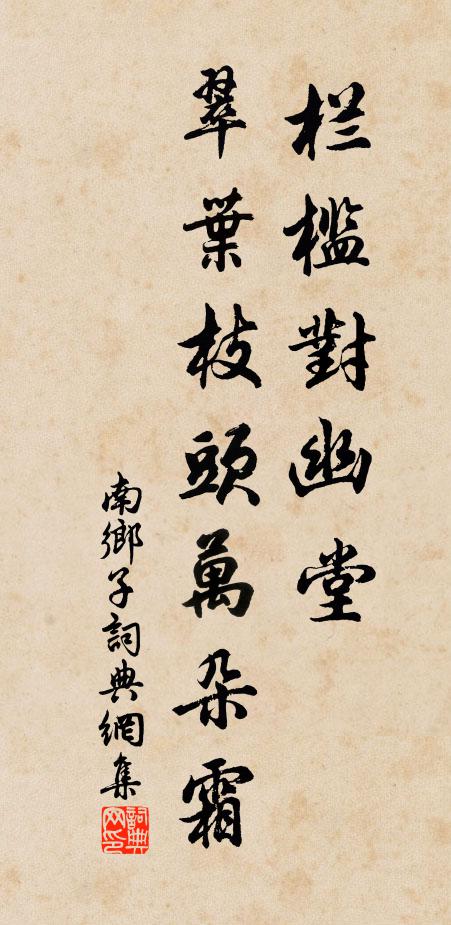 栏槛對幽堂
翠葉枝頭萬朵霜
南鄉子詞典網集
詞典网印